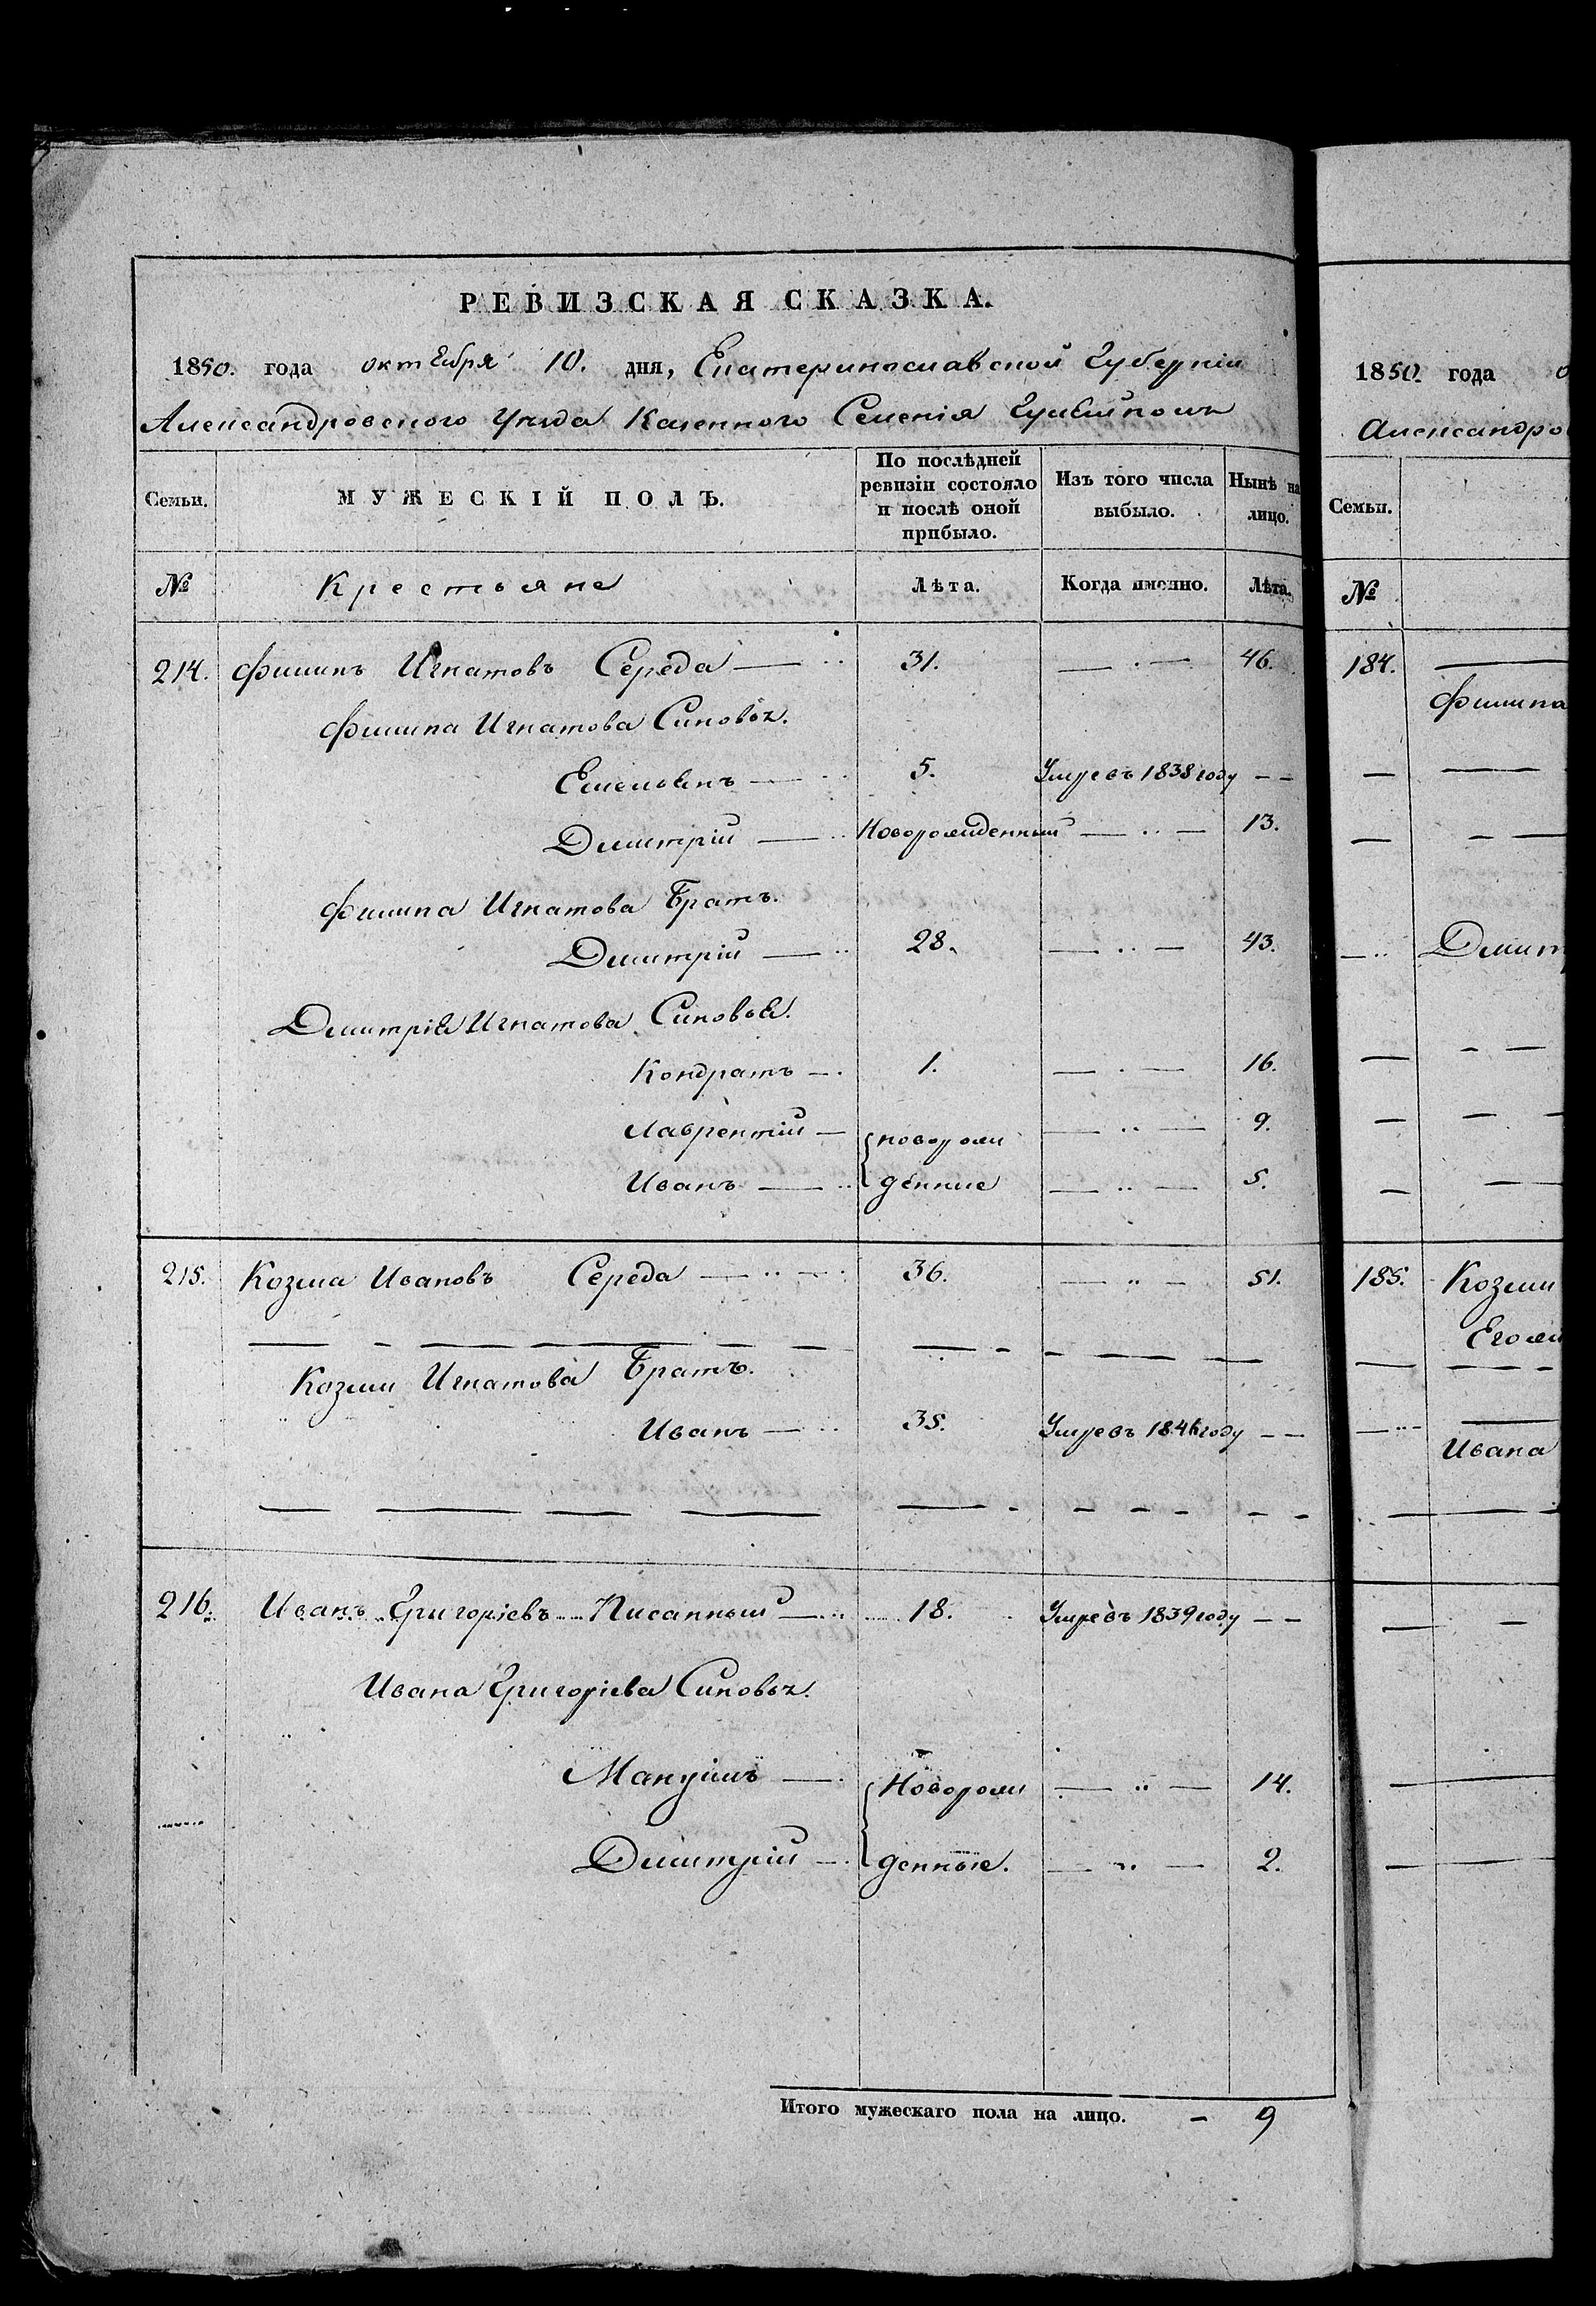 РЕВИЗСКАЯ СКАЗКА.
1850. года октября 10. дня, Екатеринославской Губерніи
Александровского Уезда Казенного Селенія Гуляйполя
Семьи. МУЖЕСКІЙ ПОЛЪ. По послѣдней ревизіи состояло и послѣ оной прибыло. Изъ того числа выбыло. Нынѣ на лицо.
№ Крестьяне Лѣта. Когда именно. Лѣта.
214. Филипъ Игнатовъ Середа — 31. — 46.
Филипа Игнатова Синовья.
Емельянъ — 5. Умревъ 1838 году — —
Димитрій — Новорожденный — 13.
Филипа Игнатова Братъ.
Димитрій — 28. — 43.
Димитрія Игнатова Синовья.
Кондратъ — 1. — 16.
Лаврентій — новорож — 9.
Иванъ — денние — 5.
215. Козма Ивановъ Середа — 36. — 51.
Козми Игнатова Братъ.
Иванъ — 35. Умревъ 1846 году — —
216. Иванъ Григоріевъ Писанный — 18. Умревъ 1839 году — —
Ивана Григоріева Синовья.
Мануилъ — Новорож — 14.
Димитрій — денные. — 2.
Итого мужескаго пола на лицо. — 9
1850. года о
Александро
Семьи.
№
184. —
Филипа
Димит
185. Козми
Его
Ивана